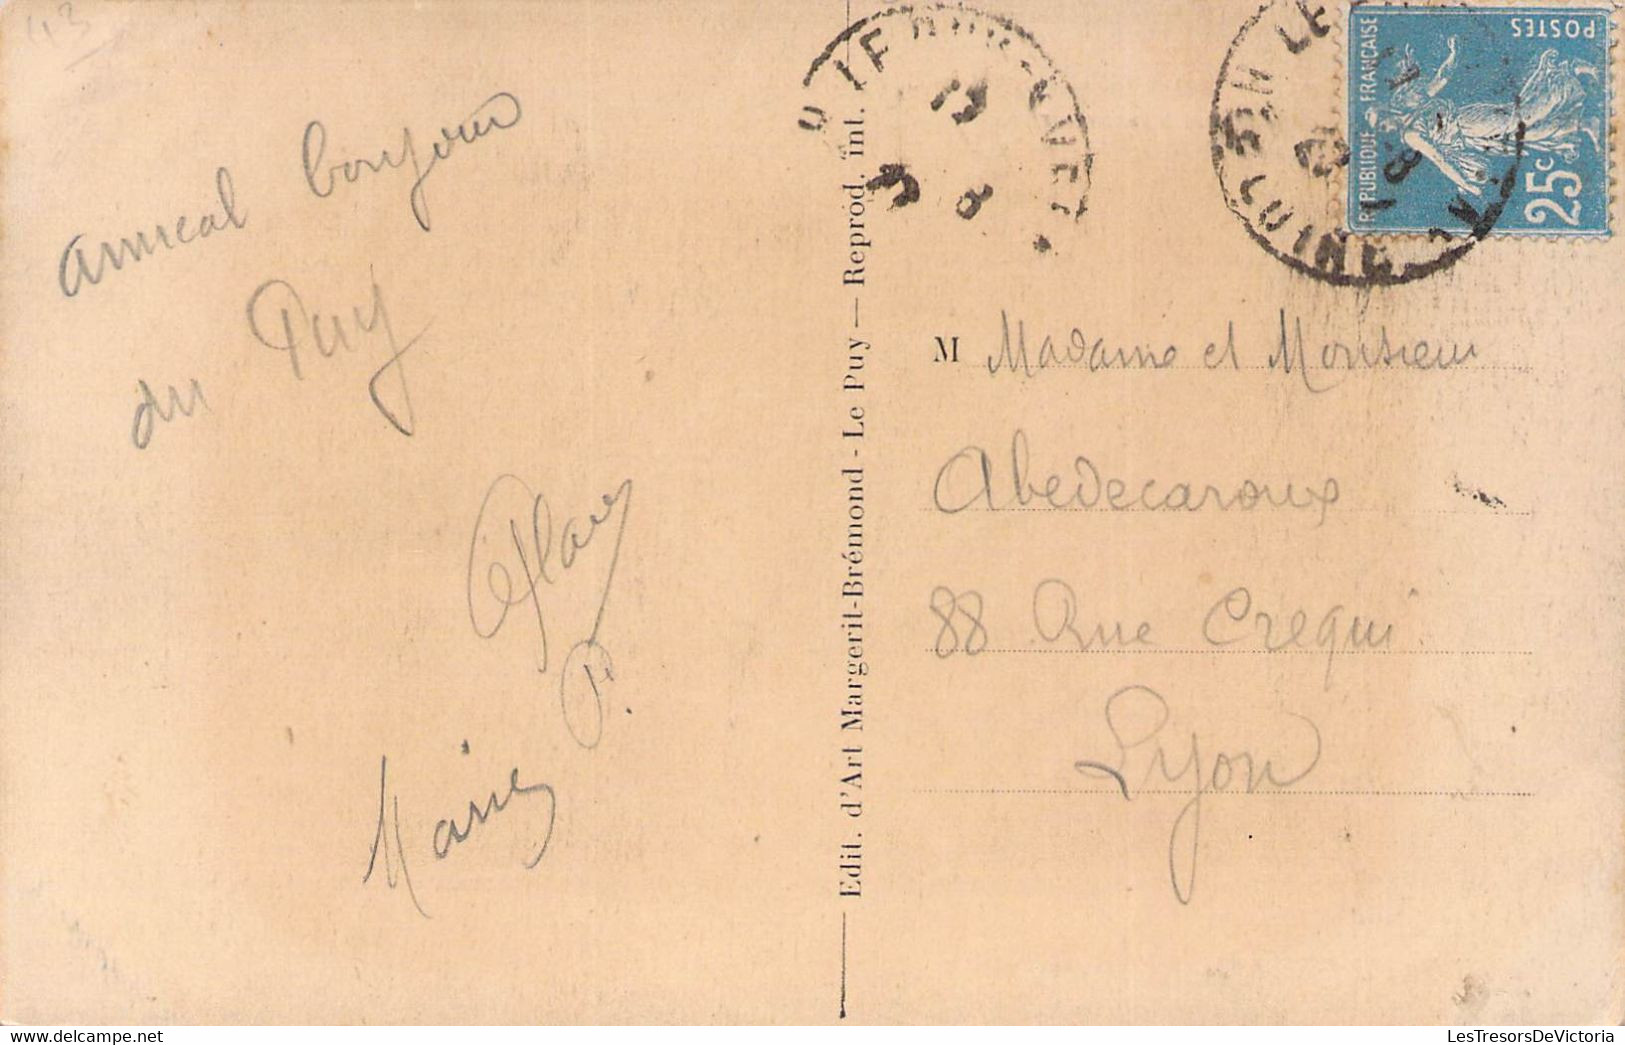 43
amical bonjour
du Puy
P.
Marie
Edit. d'Art Margerit-Brémond - Le Puy — Reprod. int.
POSTES
REPUBLIQUE FRANÇAISE
25c
M Madame et Monsieur
Abedecaroux
88 Rue Crequi
Lyon
LesTresorsDeVictoria